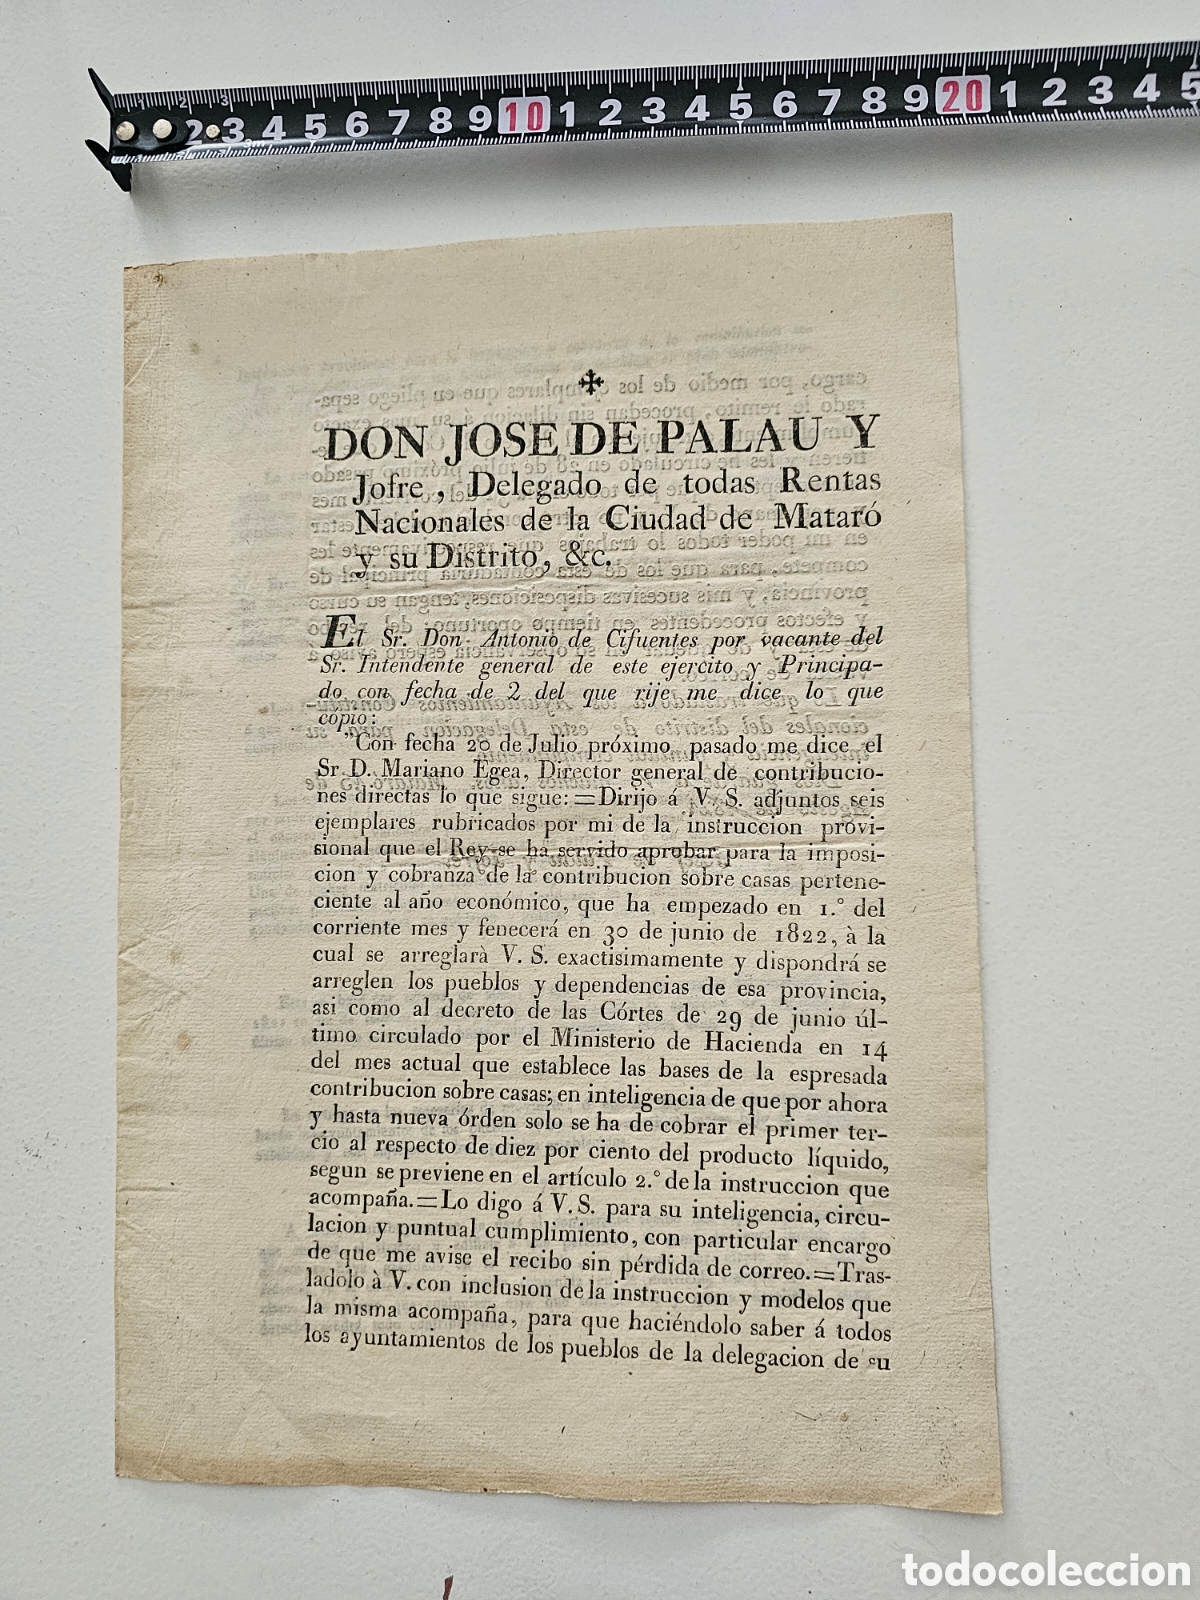 1 2 3
2 3 4 5 6 7 8 9 10 1 2 3 4 5 6 7 8 9 20 1 2 3 4 5
DON JOSE DE PALAU Y
Jofre, Delegado de todas Rentas
Nacionales de la Ciudad de Mataró
y su Distrito, &c.
El Sr. Don Antonio de Cifuentes por vacante del
Sr. Intendente general de este ejercito y Principa-
do con fecha de 2 del que rije me dice lo que
copio:
"Con fecha 20 de Julio próximo pasado me dice el
Sr. D. Mariano Egea, Director general de contribucio-
nes directas lo que sigue:=Dirijo á V. S. adjuntos seis
ejemplares rubricados por mi de la instruccion provi-
sional que el Rey se ha servido aprobar para la imposi-
cion y cobranza de la contribucion sobre casas pertene-
ciente al año económico, que ha empezado en 1.º del
corriente mes y fenecerá en 30 de junio de 1822, à la
cual se arreglarà V. S. exactisimamente y dispondrá se
arreglen los pueblos y dependencias de esa provincia,
asi como al decreto de las Córtes de 29 de junio úl-
timo circulado por el Ministerio de Hacienda en 14
del mes actual que establece las bases de la espresada
contribucion sobre casas; en inteligencia de que por ahora
y hasta nueva órden solo se ha de cobrar el primer ter-
cio al respecto de diez por ciento del producto líquido,
segun se previene en el artículo 2.º de la instruccion que
acompaña.=Lo digo á V. S. para su inteligencia, circu-
lacion y puntual cumplimiento, con particular encargo
de que me avise el recibo sin pérdida de correo.=Tras-
ladolo à V. con inclusion de la instruccion y modelos que
la misma acompaña, para que haciéndolo saber á todos
los ayuntamientos de los pueblos de la delegacion de su
todocoleccion